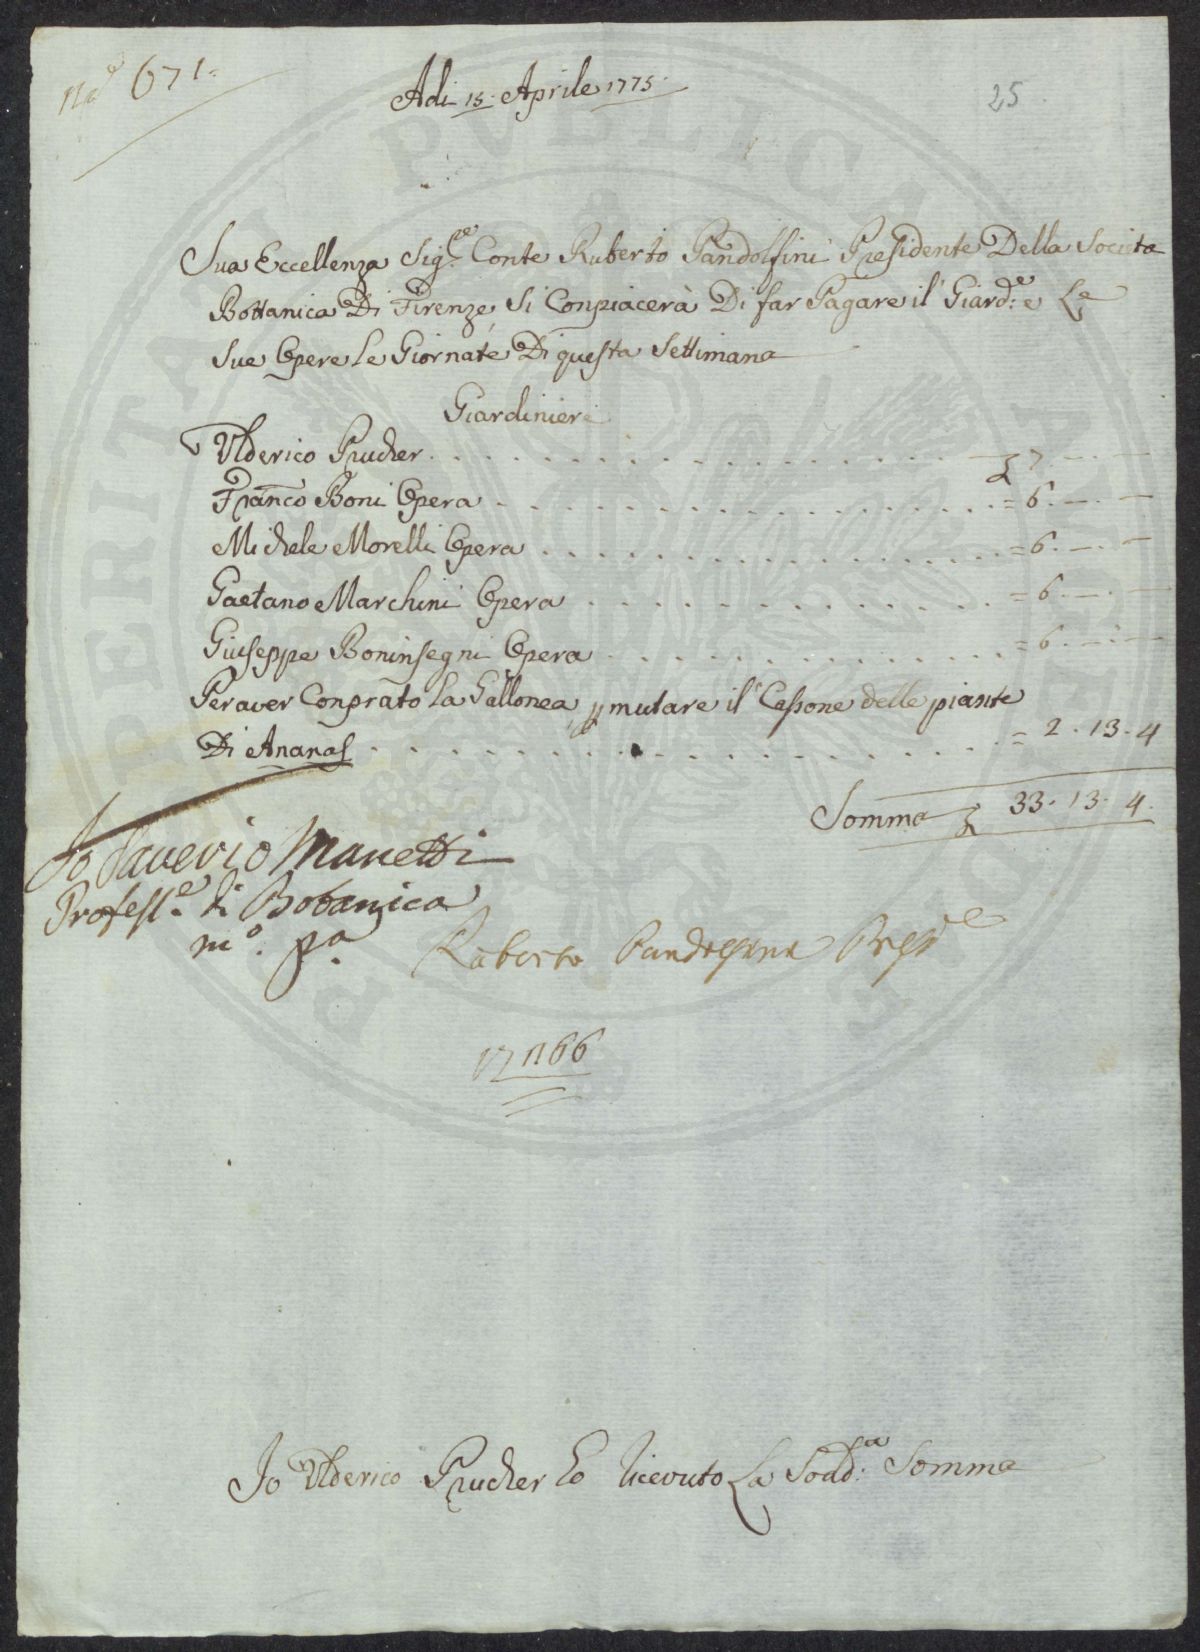 671.
Adi 15. Aprile 1775.
25
Sua Eccellenza Sig.re Conte Ruberto Pandolfini Presidente Della Societa
Bottanica Di Firenze, Si Conpiacerà Di far Pagare il Giard:e e Le
Sue Opere Le Giornate Di questa Settimana
Giardinieri
Ulderico Prucher ₤ 7. —. —
Franco Boni Opera = 6. —. —
Michele Morelli Opera = 6. —. —
Gaetano Marchini Opera = 6. —. —
Giuseppe Boninsegni Opera = 6. —. —
Per aver Conprato la Gallonea, p mutare il Cassone delle piante
Di Ananas = 2. 13. 4
Somma ₤ 33. 13. 4.
Io Saverio Manetti
Profess.e di Botanica
m.o p.a
Roberto Pandolfini Presid.e
1166
Io Ulderico Prucher Ho Ricevuto La Sodd:a Somma
PERITATI PUBLICAE